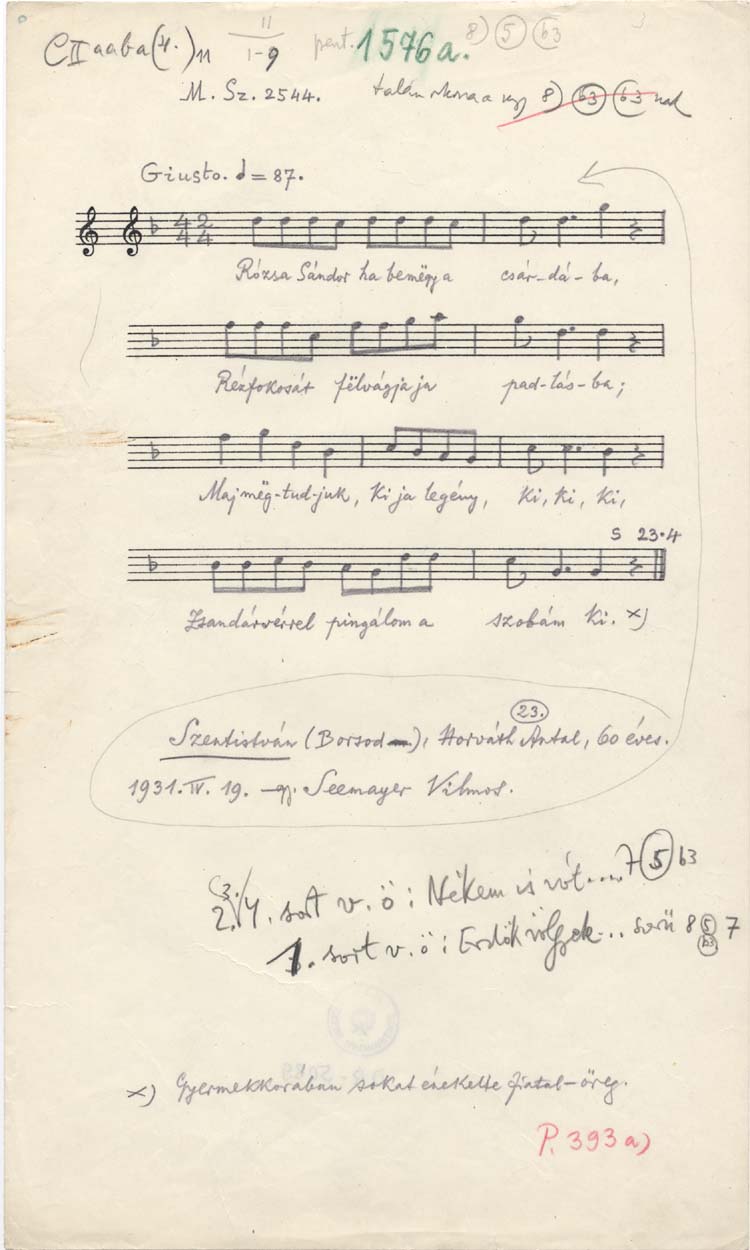 CII aaba(4.)11 11 1-9 pent. 1576a. 8) 5 b3
M. Sz. 2544. talán 8) b3 b3
Giusto. = 87.
4 2
4 4
Rózsa Sándor ha bemëgy a csár-dá-ba,
Rézfokosát fëlvágja ja pad-lás-ba;
Maj mëg-tud-juk, Ki ja legény, Ki, ki, ki,
S 23.4
Zsandárvérrel pingálom a szobám ki. x)
23.
Szentistván (Borsod), Horváth Antal, 60 éves.
1931. IV. 19. Seemayer Vilmos.
2. 3. 4. sort v. ö: Nékem is vót.... 7 5 b3
1. sort v. ö: Erdők völgyek... sorú 8 5 b3 7
x) Gyermekkorában sokat énekelte fiatal-öreg.
P. 393 a)